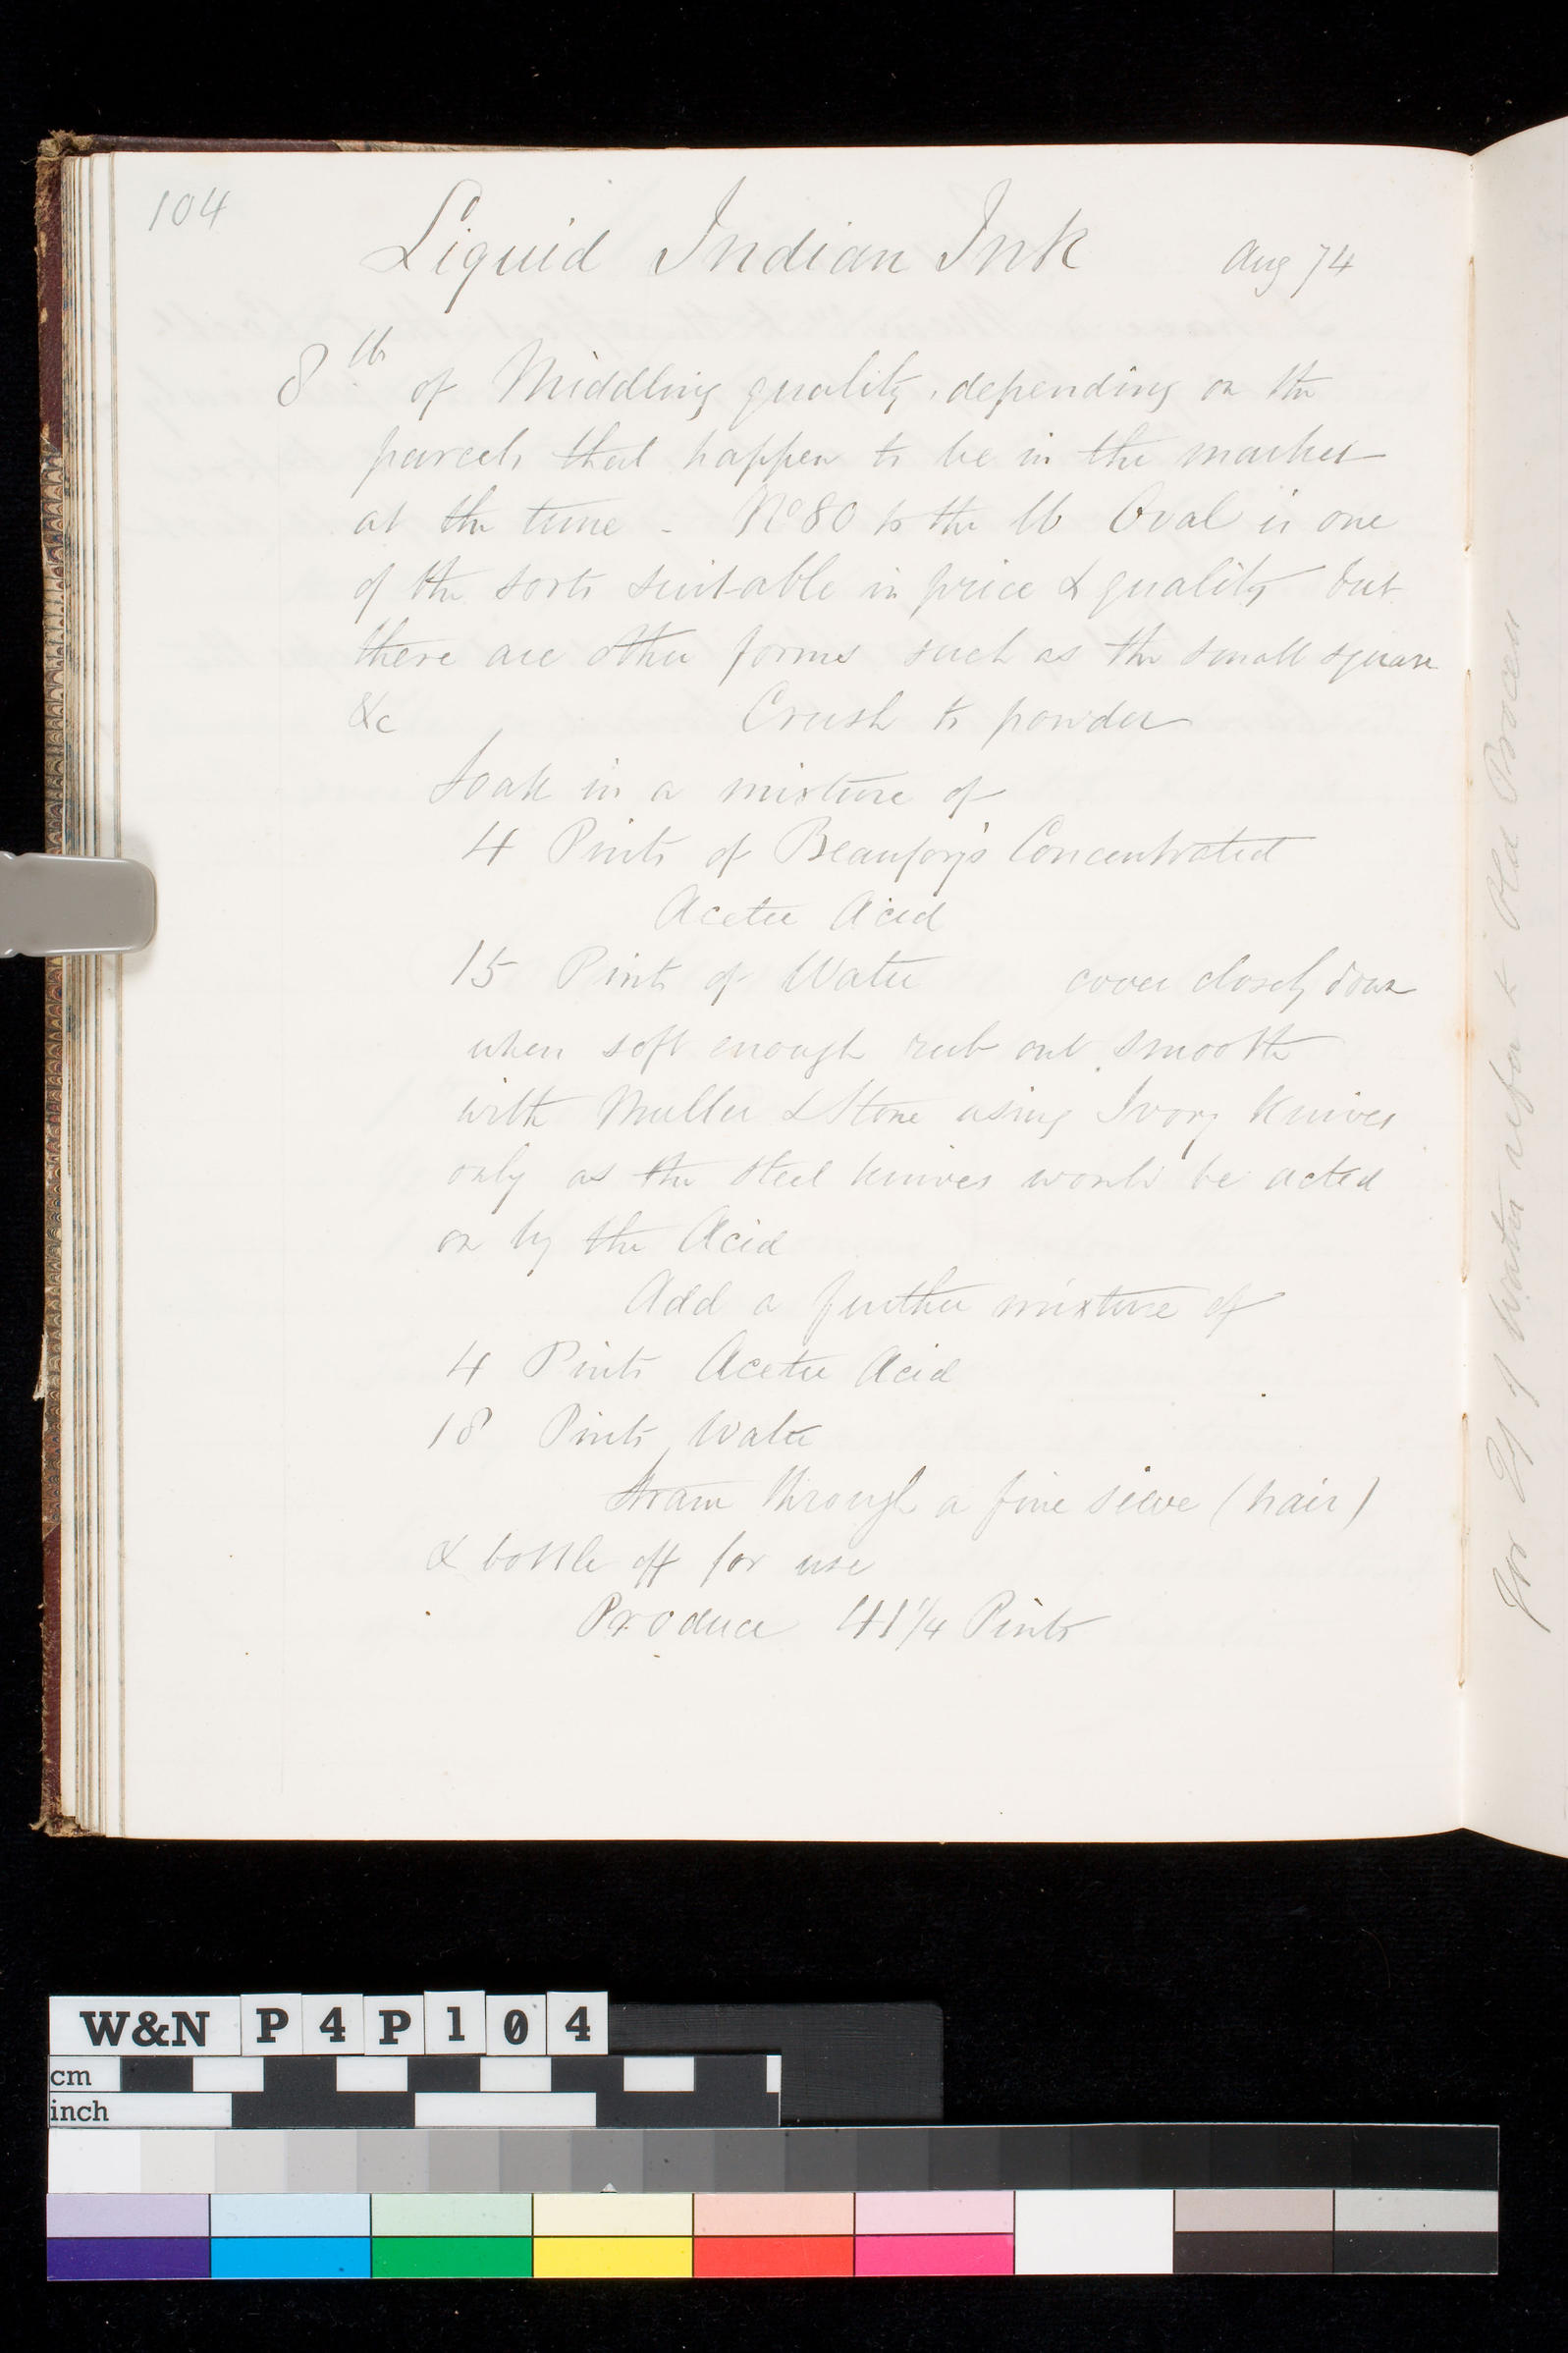 104
Liquid Indian Ink Aug 74
8 lb of Middling quality, depending on the
parcels that happen to be in the market
at the time - No 80 to the lb Oval is one
of the sorts suitable in price & quality but
there are other forms such as the small square
&c Crush to powder
Soak in a mixture of
4 Pints of Beaufoy's Concentrated
Acetic Acid
15 Pints of Water cover closely down
when soft enough rub out smooth
with Muller & Stone using Ivory Knives
only as the steel knives would be acted
on by the Acid
Add a further mixture of
4 Pints Acetic Acid
18 Pints Water
Strain through a fine sieve (hair)
& bottle off for use
Produce 41 1/4 Pints
of Water refer to Old Process
W&N P4P104
cm
inch